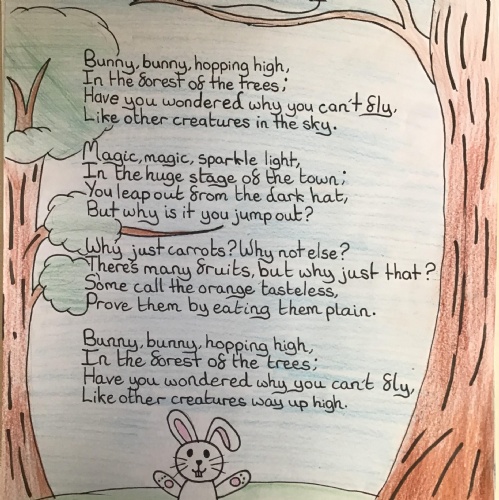 Bunny, bunny, hopping high,
In the forest of the trees;
Have you wondered why you can't fly,
Like other creatures in the sky.
Magic, magic, sparkle light,
In the huge stage of the town;
You leap out from the dark hat,
But why is it you jump out?
Why just carrots? Why not else?
There's many fruits, but why just that?
Some call the orange tasteless,
Prove them by eating them plain.
Bunny, bunny, hopping high,
In the forest of the trees;
Have you wondered why you can't fly,
Like other creatures way up high.